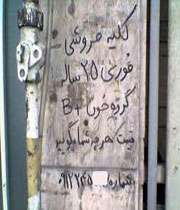 کلیه فروشی
فوری ۲۵ ساله
گروه خون B+
قیمت هر چه شما بگویید
شماره ۰۹۱۲۲۴۵